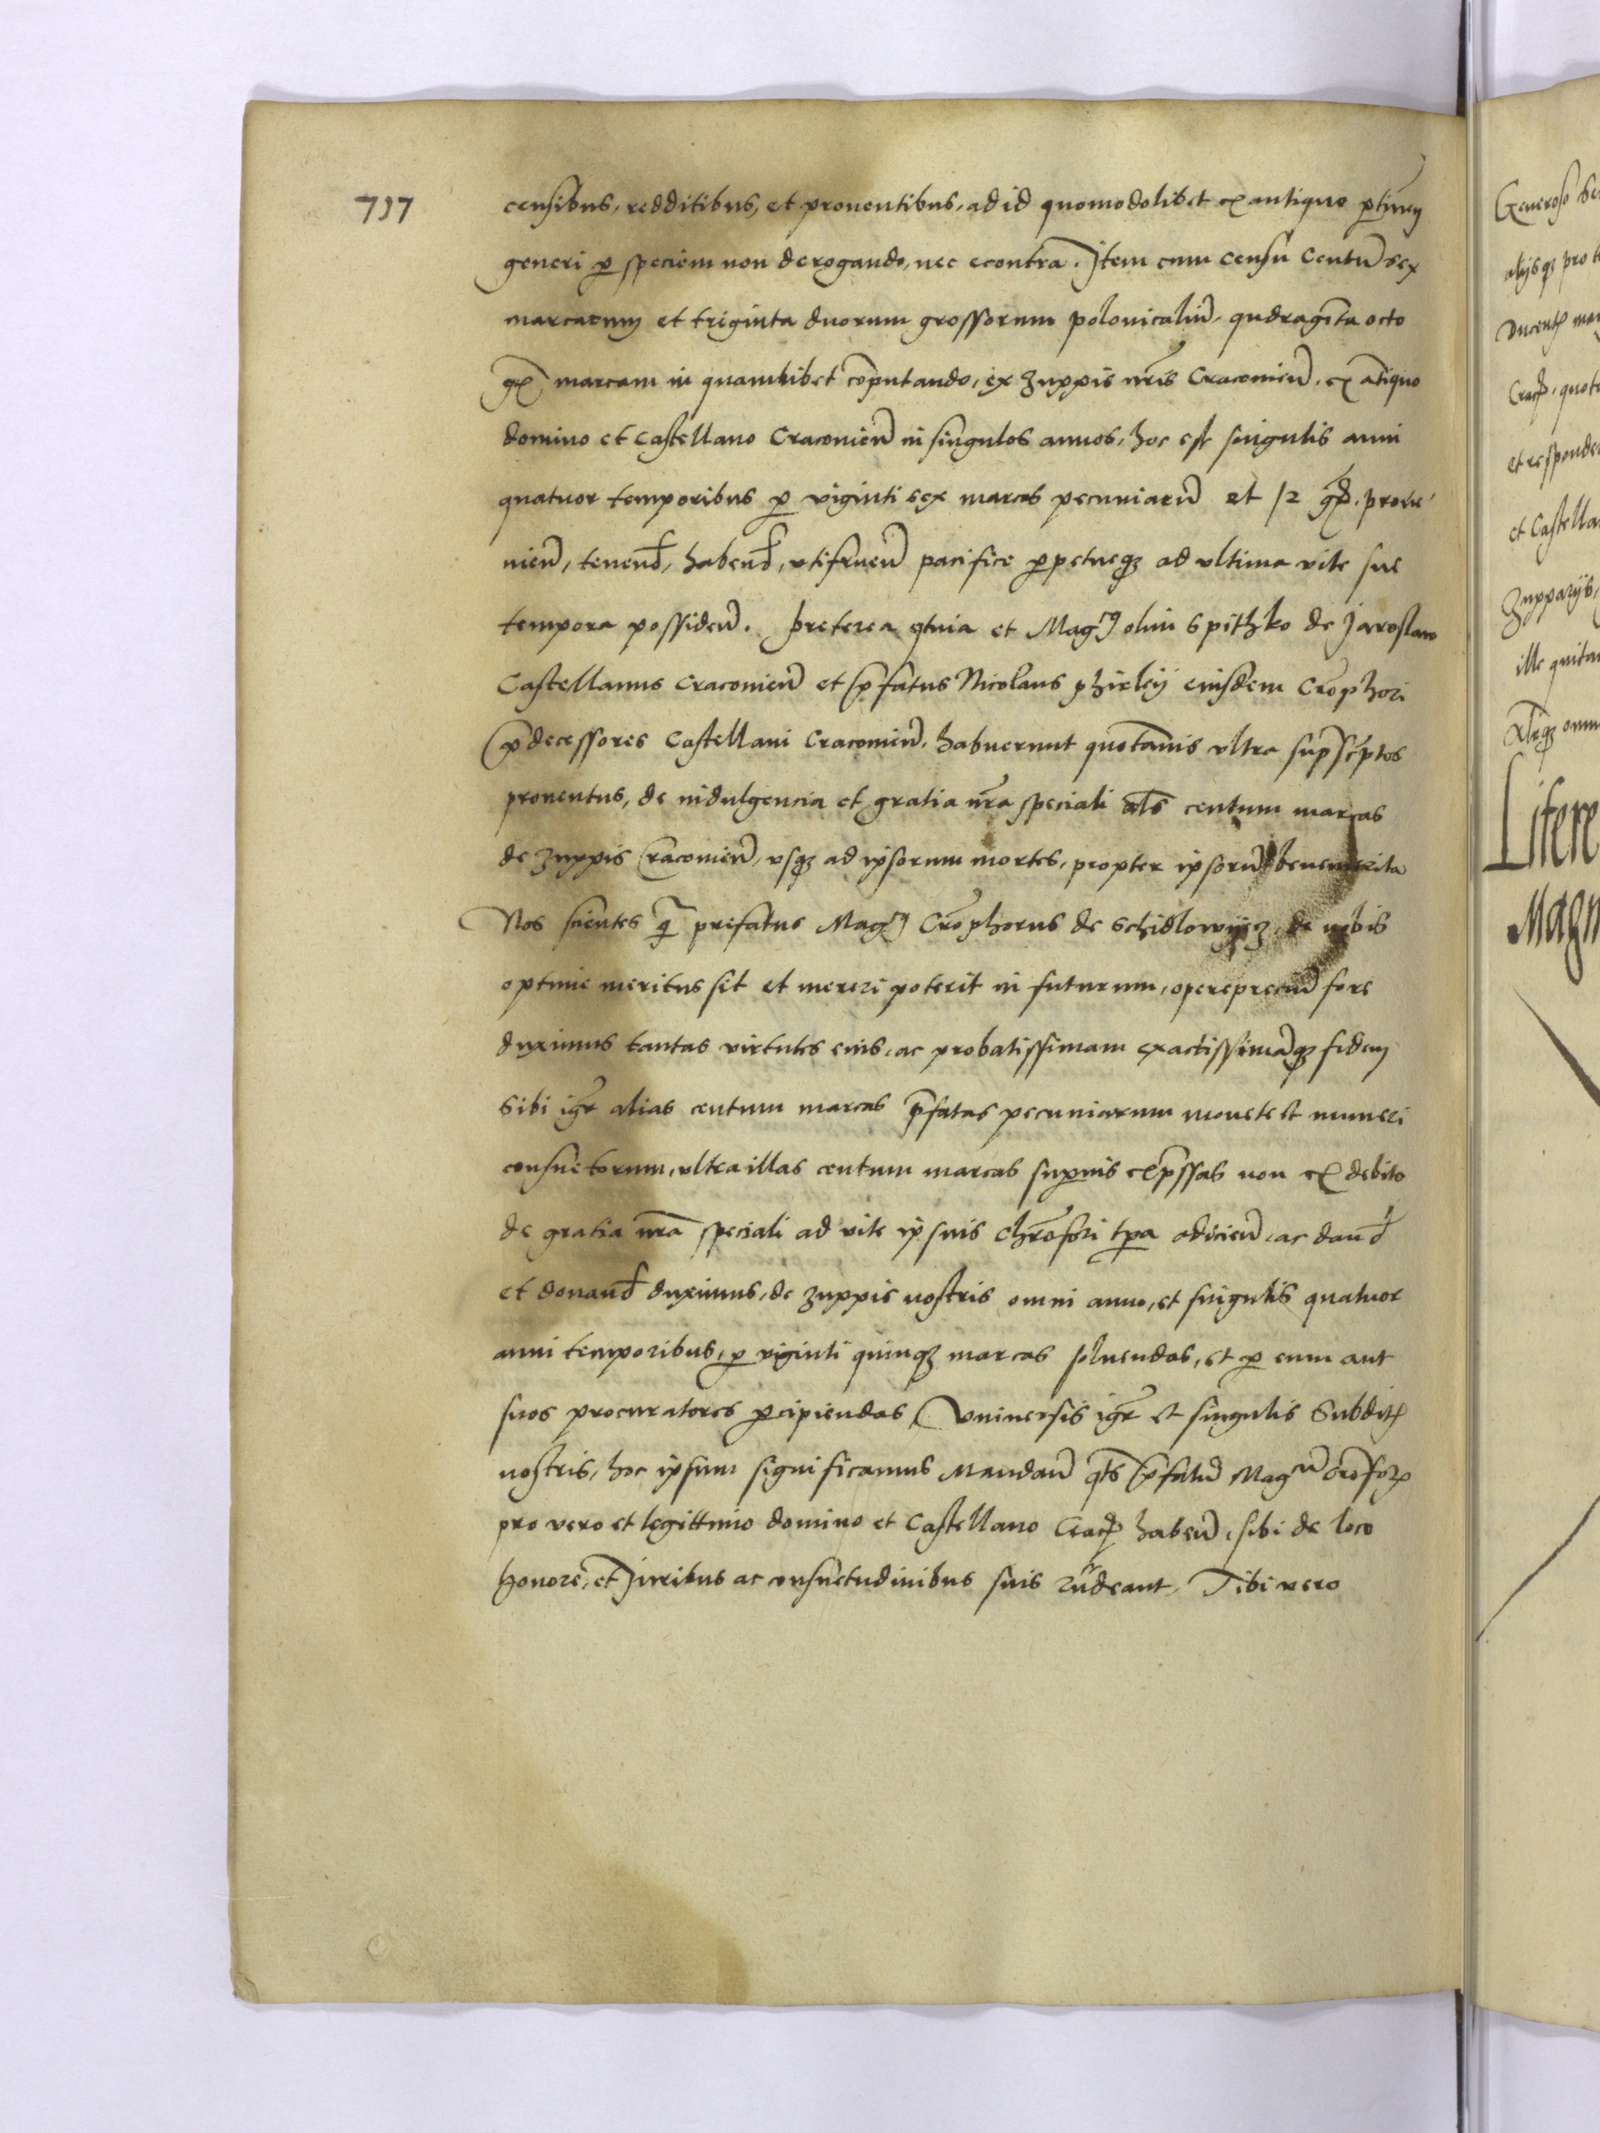 717
censibus, redditibus, et proventibus, ad id quomodolibet ex antiquo p̄tineñ
generi p speciem non derogando, nec econtra. Item cum censu Centū sex
marcarum et triginta duorum grossorum polonicaliū, qudragīta octo
gꝝ marcam in quamlibet cōputando, ex zuppis nr̄is Cracovieñ. ex ātiquo
domino et castellano Cracovieñ in singulos annos, hoc est singulis anni
quatuor temporibus p viginti sex marcas pecuniarū et 12 gꝝ. prove
nieñ, teneñd, habeñd, utifrueñ pacifice ppetueqꝫ ad ultima vite sue
tempora possideñ. Preterea qtuia et Mag͡s olim Spithko de Jaroslaw
Castellanus Cracovieñ et p̄fatus Nicolaus phirleij eiusdem Crōphori
p̄decessores Castellani Cracovieñ. habuerunt quotānis ultra sup̄sc̄ptos
proventus, de indulgencia et gratia nr̄a speciali al̄s centum marcas
de zuppis Cracovieñ, usqꝫ ad ipsorum mortes, propter ipsorū benemerita
Nos scientes q̄ prefatus Mag͡s Crōphorus de Schidlowijecz, de nobis
optime meritus sit et mereri poterit in futurum, opereprecīū fore
duximus tantas virtutes eius, ac probatissimam exactissimāqꝫ fidem
Sibi ig̃r alias centum marcas p̄fatas pecuniarum monete et numeri
consuetorum, ultra illas centum marcas supius exp̄ssas non ex debito
de gratia nr̄a speciali ad vite ipsius Chrōfori tp̄a adicieñ, ac dañd
et donañd duximus, de zuppis nostris omni anno, et singulis quatuor
anni temporibus, p viginti quinqꝫ marcas solvendas, et p eum aut
suos procuratores pcipiendas, Universis ig̃r et singulis Subditꝭ
nostris, hoc ipsum significamus Mandañ qt̄s p̄fatū Mag͡m Crōforꝫ
pro vero et legittimo domino et Castellano Cracꝭ habeñ, sibi de loco
honore, et Juribus ac consuetudinibus suis rñdeant, Tibi vero